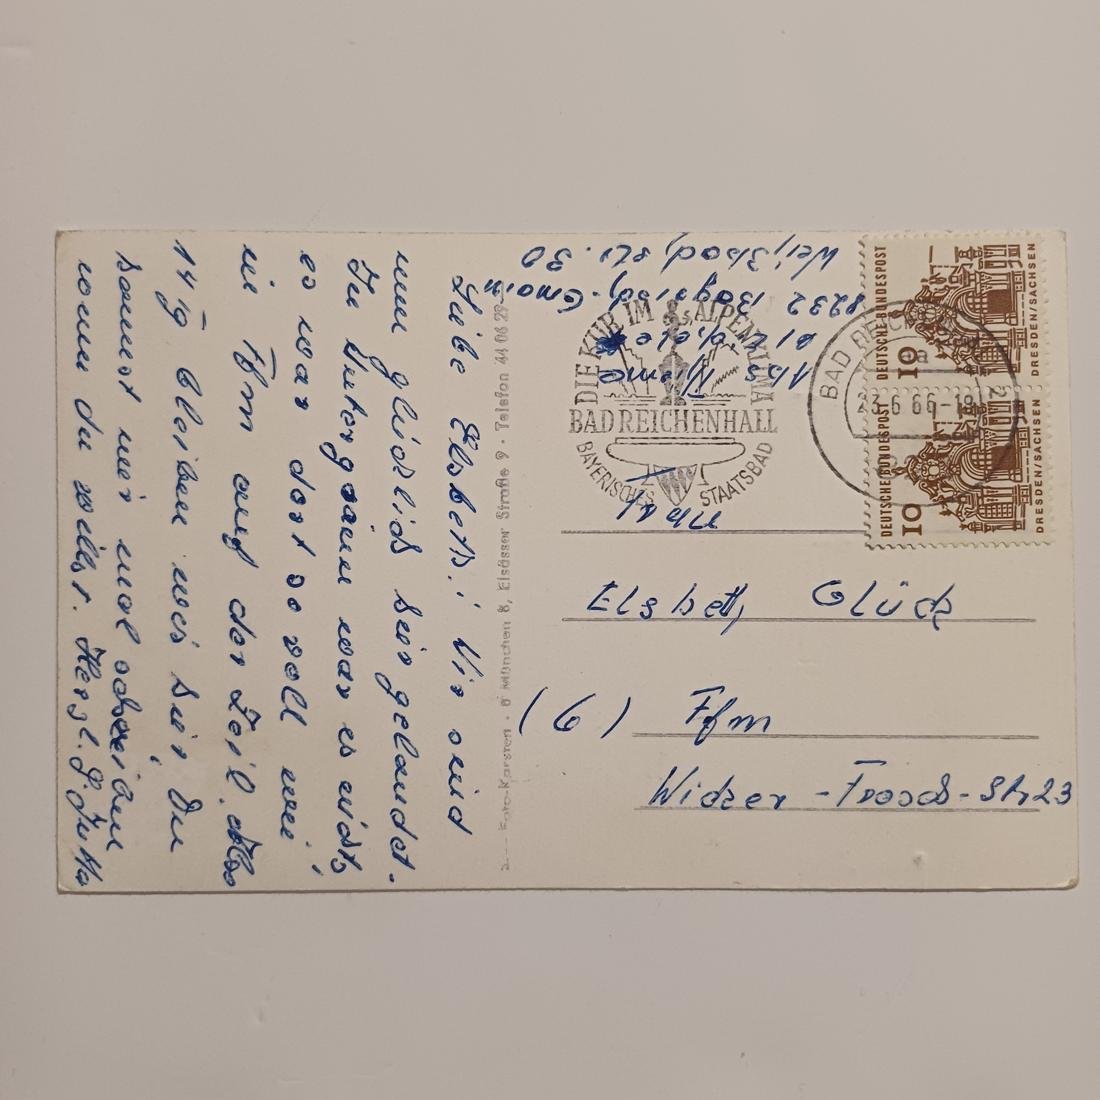 Liebe Elsbeth! Wir sind
nun glücklich hier gelandet.
In Untergrainau war es nichts
es war dort so voll wie
in Ffm auf der Zeil. Also
14 Tg bleiben wir hier. Du
kannst mir mal schreiben
wenn du willst. Herzl. Jutta
Foto-Karsten · 8 München 8, Elsässer Straße 9 · Telefon 44 06 29
Abs
b/
8232 Bayrisch-Gmain
Weißbachstr. 30
DIE KUR IM ALPENKLIMA
BAD REICHENHALL
BAYERISCHES STAATSBAD
BAD REICHENHALL 2
a
23.6.66-18
DEUTSCHE BUNDESPOST
10
DRESDEN/SACHSEN
DEUTSCHE BUNDESPOST
10
DRESDEN/SACHSEN
Elsbeth Glück
(6) Ffm
Str 23